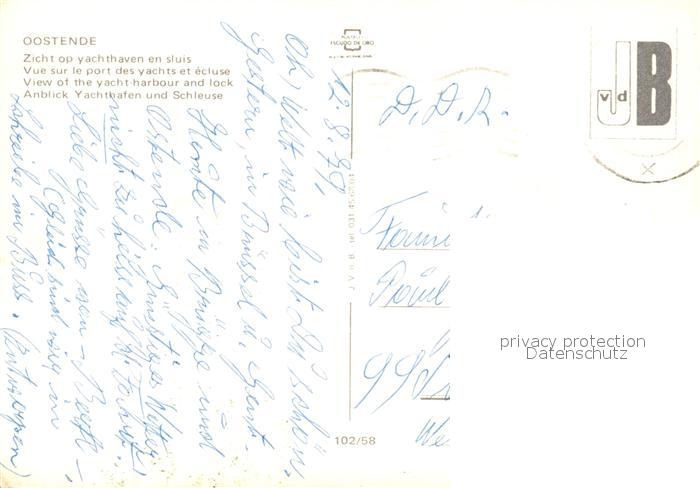 OOSTENDE
Zicht op yachthaven en sluis
Vue sur le port des yachts et écluse
View of the yacht-harbour and lock
Anblick Yachthafen und Schleuse
ESCUDO DE ORO
12.8.79,
Oh, Welt wie bist Du schön,
Gestern, in Brüssel u. Gent.
Heute in Brügge und
Ostende. Günstiges Wetter
nicht zu heiß
Liebe Grüsse von
Gleich sind wir in
schreibe im Bus. (Antwerpen)
D.D.R.
Famil
Paul
102/58
vd B
privacy protection
Datenschutz